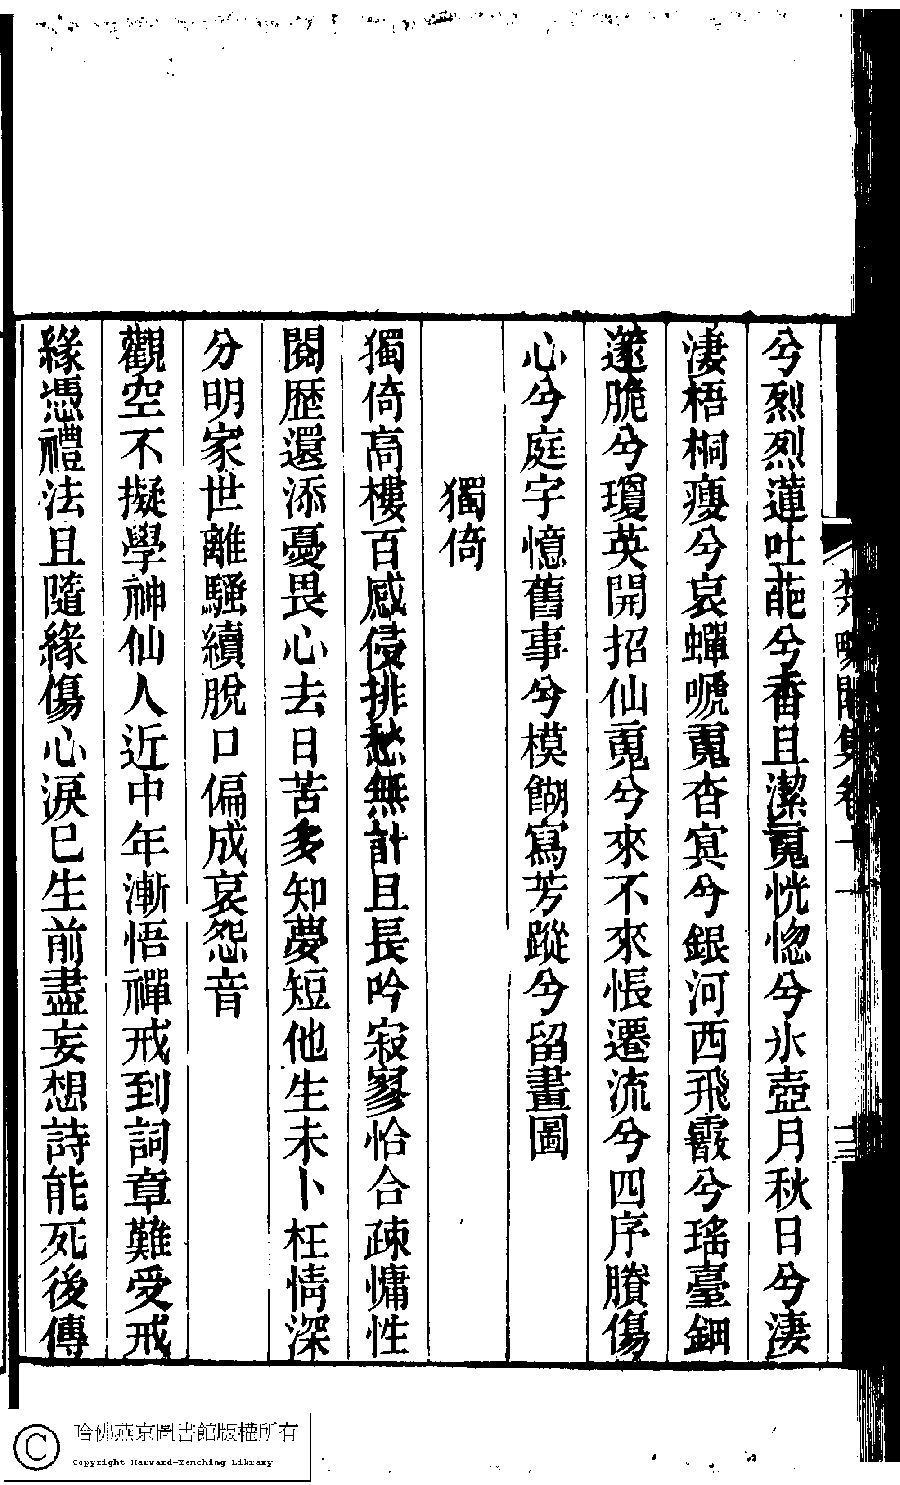 兮烈烈蓮吐葩兮香且潔䰟恍惚兮氷壺月秋日兮淒
淒梧桐瘦兮哀蟬嘒䰟杳㝠兮銀河西飛霞兮瑤臺鈿
邃脆兮瓊英開招仙䰟兮來不來悵遷流兮四序賸傷
心兮庭宇憶舊事兮模餬寫芳蹤兮留畫圖
獨倚
獨倚高樓百感侵排愁無計且長吟寂寥恰合疎慵性
閱歷還添憂畏心去日苦多知夢短他生未卜枉情深
分明家世離騷續脫口偏成哀怨音
觀空不擬學神仙人近中年漸悟禪戒到詞章難受戒
緣憑禮法且隨緣傷心淚已生前盡妄想詩能死後傳
哈佛燕京圖書館版權所有
Copyright Harvard-Yenching Library